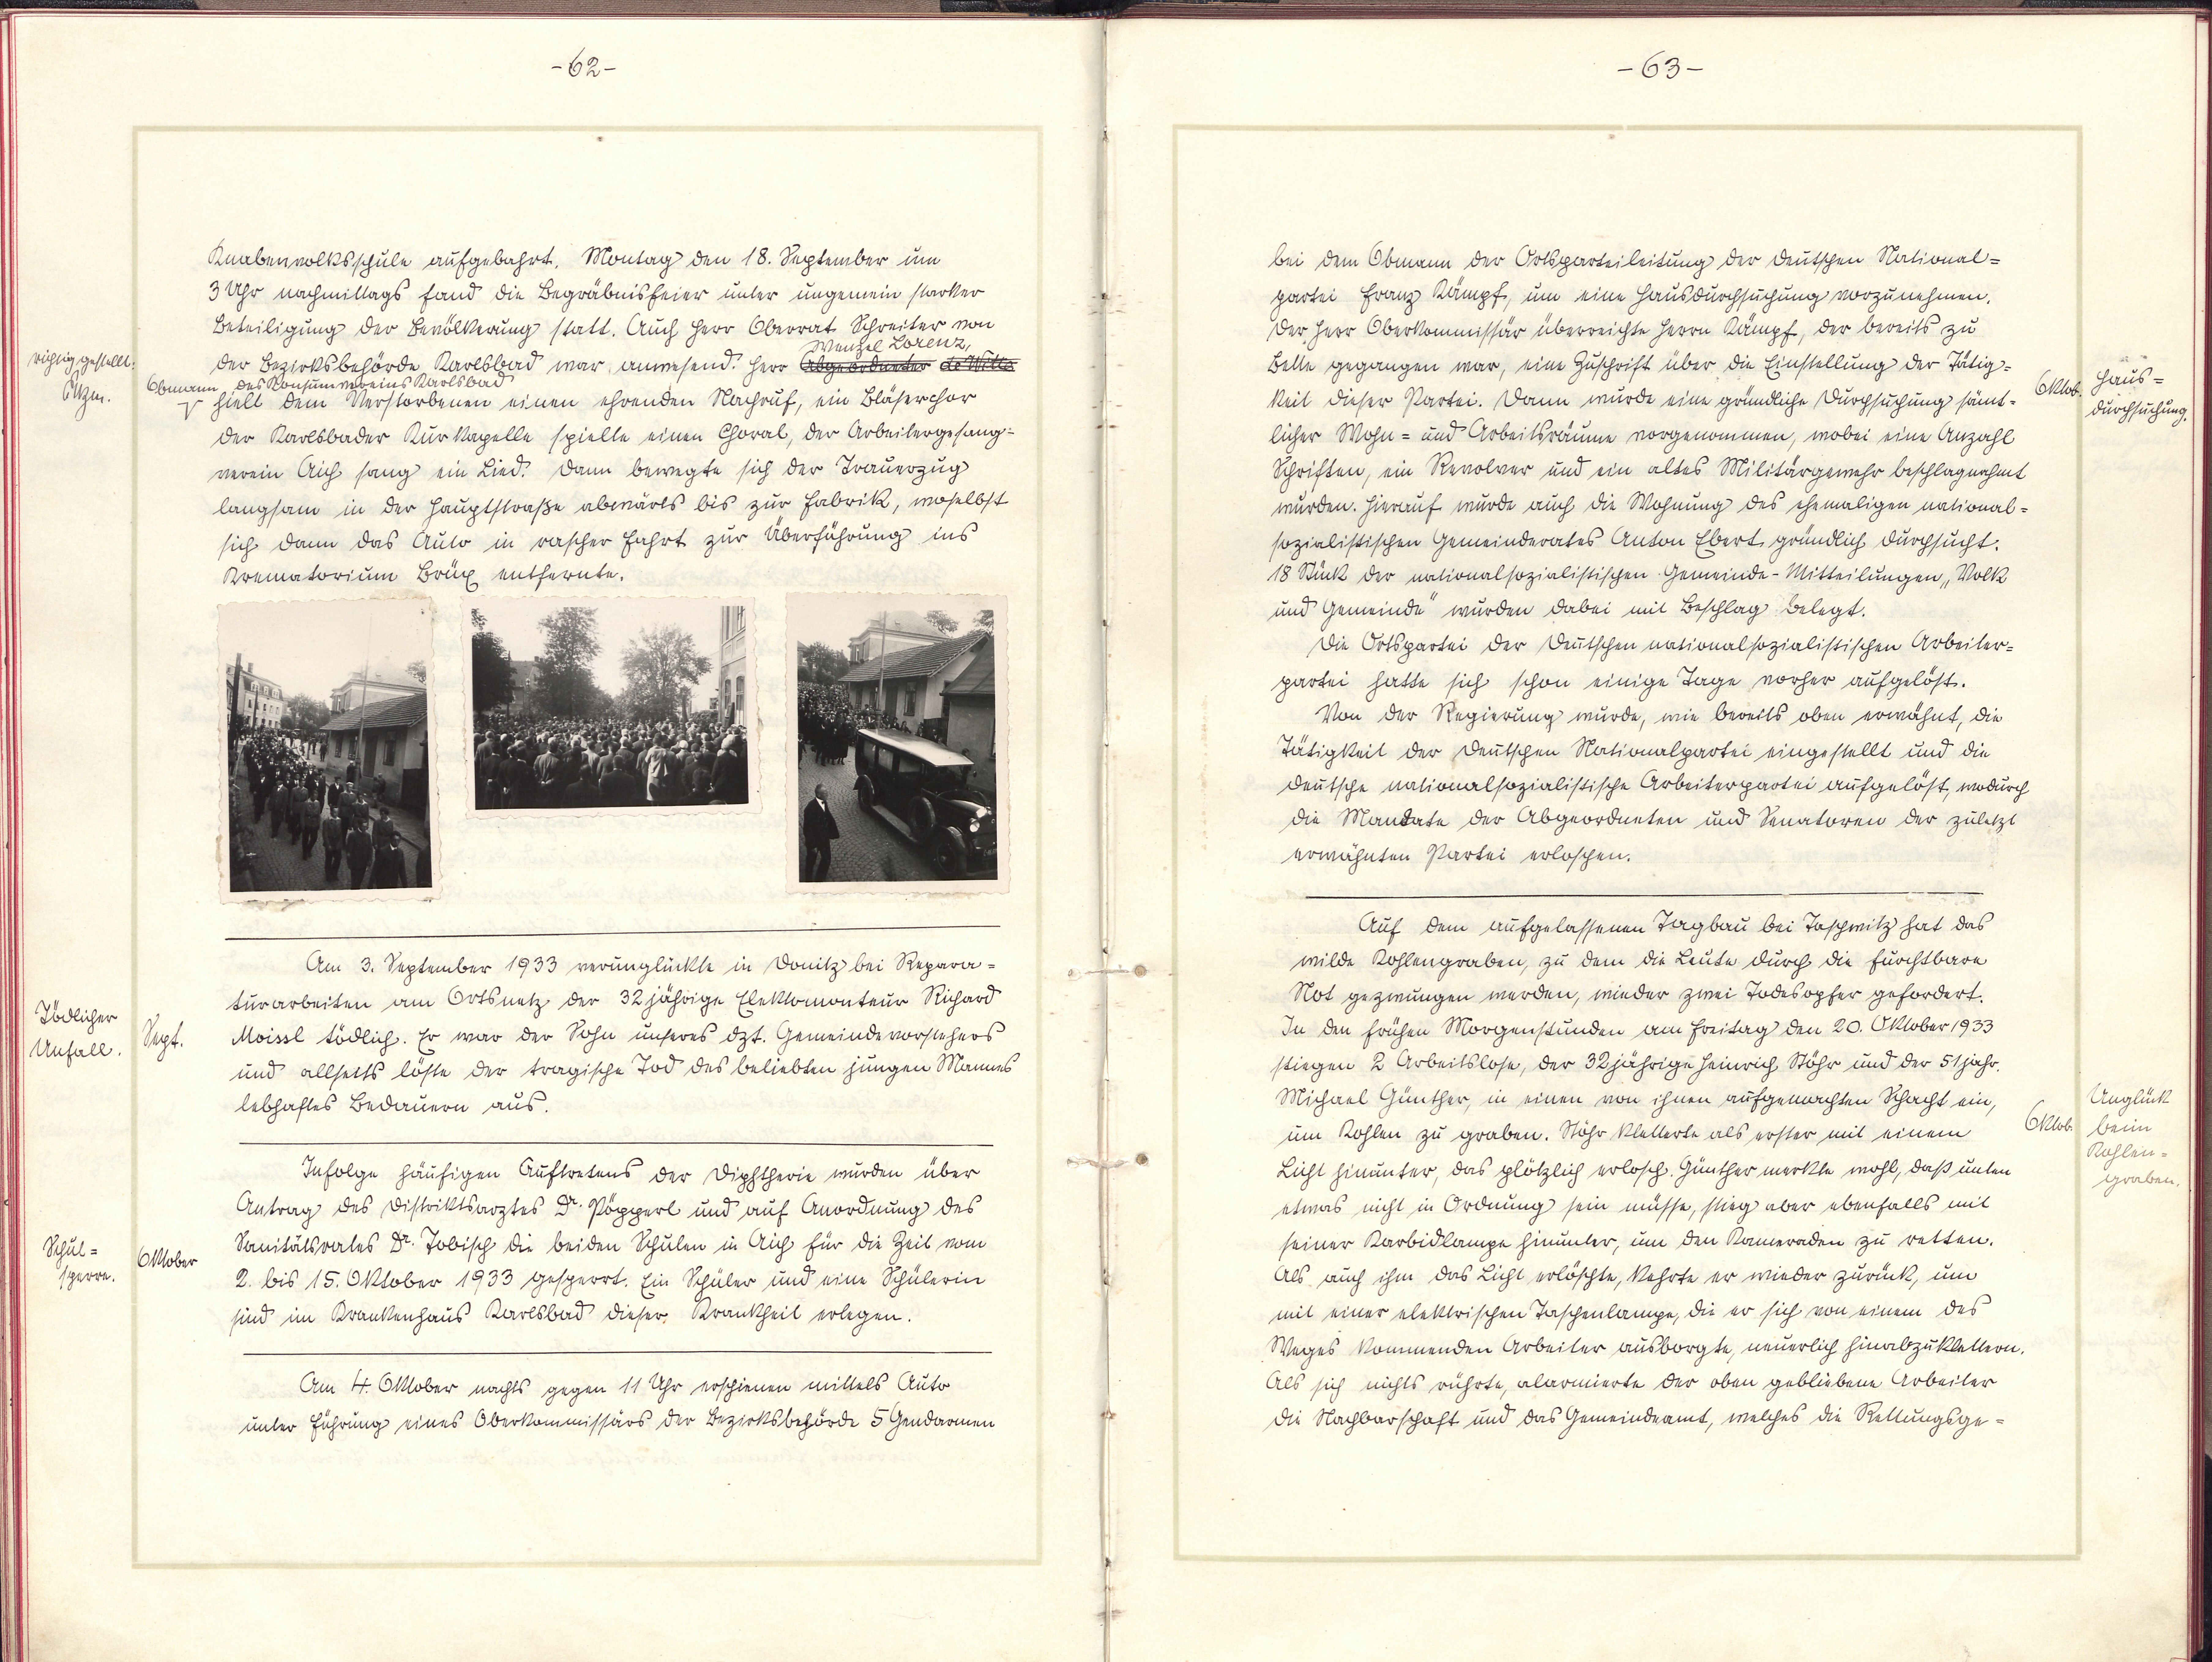 -62-
Knabenvolksschule aufgebahrt. Montag den 18. September um
3 Uhr nachmittags fand die Begräbnisfeier unter ungemein starker
Beteiligung der Bevölkerung statt. Auch Herr Oberrat Schreiter von
Wenzel Lorenz,
der Bezirksbehörde Karlsbad war anwesend. Herr Abgeordneter de Witte
richtig gestellt:
Obmann des Konsumvereins Karlsbad
hielt dem Verstorbenen einen ehrenden Nachruf, ein Bläserchor
der Karlsbader Kurkapelle spielte einen Choral, der Arbeitergesang-
verein Aich sang ein Lied. Dann bewegte sich der Trauerzug
langsam in der Hauptstraße abwärts bis zur Fabrik, woselbst
sich dann das Auto in rascher Fahrt zur Überführung ins
Krematorium Brüx entfernte.
Am 3. September 1933 verunglückte in Donitz bei Repara=
turarbeiten am Ortsnetz der 32 jährige Elektromonteur Richard
Moissl tödlich. Er war der Sohn unseres dzt. Gemeindevorstehers
und allseits löste der tragische Tod des beliebten jungen Mannes
lebhaftes Bedauern aus.
Tödlicher
Unfall.
Sept.
Infolge häufigen Auftretens der Diphtherie wurden über
Antrag des Distriktsarztes Dr. Pöpperl und auf Anordnung des
Sanitätsrates Dr. Tobisch die beiden Schulen in Aich für die Zeit vom
2. bis 15. Oktober 1933 gesperrt. Ein Schüler und eine Schülerin
sind im Krankenhaus Karlsbad dieser Krankheit erlegen.
Schul=
sperre.
Oktober
Am 4. Oktober nachts gegen 11 Uhr erschienen mittels Auto
unter Führung eines Oberkommissärs der Bezirksbehörde 5 Gendarmen
-63-
bei dem Obmann der Ortsparteileitung der deutschen National=
partei Franz Kämpf, um eine Hausdurchsuchung vorzunehmen.
Der Herr Oberkommissär überreichte Herrn Kämpf, der bereits zu
Bette gegangen war, eine Zuschrift über die Einstellung der Tätig=
keit dieser Partei. Dann wurde eine gründliche Durchsuchung sämt=
licher Wohn= und Arbeitsräume vorgenommen, wobei eine Anzahl
Schriften, ein Revolver und ein altes Militärgewehr beschlagnahmt
wurden. Hierauf wurde auch die Wohnung des ehemaligen national=
sozialistischen Gemeinderates Anton Ebert gründlich durchsucht.
18 Stück der nationalsozialistischen Gemeinde-Mitteilungen „Volk
und Gemeinde" wurden dabei mit Beschlag belegt.
Oktob.
Haus=
durchsuchung.
Die Ortspartei der Deutschen nationalsozialistischen Arbeiter=
partei hatte sich schon einige Tage vorher aufgelöst.
Von der Regierung wurde, wie bereits oben erwähnt, die
Tätigkeit der Deutschen Nationalpartei eingestellt und die
deutsche nationalsozialistische Arbeiterpartei aufgelöst, wodurch
die Mandate der Abgeordneten und Senatoren der zuletzt
erwähnten Partei erloschen.
Auf dem aufgelassenen Tagbau bei Taschwitz hat das
wilde Kohlengraben, zu dem die Leute durch die furchtbare
Not gezwungen werden, wieder zwei Todesopfer gefordert.
In den frühen Morgenstunden am Freitag den 20. Oktober 1933
stiegen 2 Arbeitslose, der 32 jährige Heinrich Stöhr und der 51 jähr.
Michael Günther, in einen von ihnen aufgemachten Schacht ein,
um Kohlen zu graben. Stöhr kletterte als erster mit einem
Licht hinunter, das plötzlich erlosch. Günther merkte wohl, daß unten
etwas nicht in Ordnung sein müsse, stieg aber ebenfalls mit
seiner Karbidlampe hinunter, um den Kameraden zu retten.
Als auch ihm das Licht erlöschte, kehrte er wieder zurück, um
mit einer elektrischen Taschenlampe, die er sich von einem des
Weges kommenden Arbeiter ausborgte, neuerlich hinabzuklettern.
Als sich nichts rührte, alarmierte der oben gebliebene Arbeiter
die Nachbarschaft und das Gemeindeamt, welches die Rettungsge=
Oktob.
Unglück
beim
Kohlen=
graben.